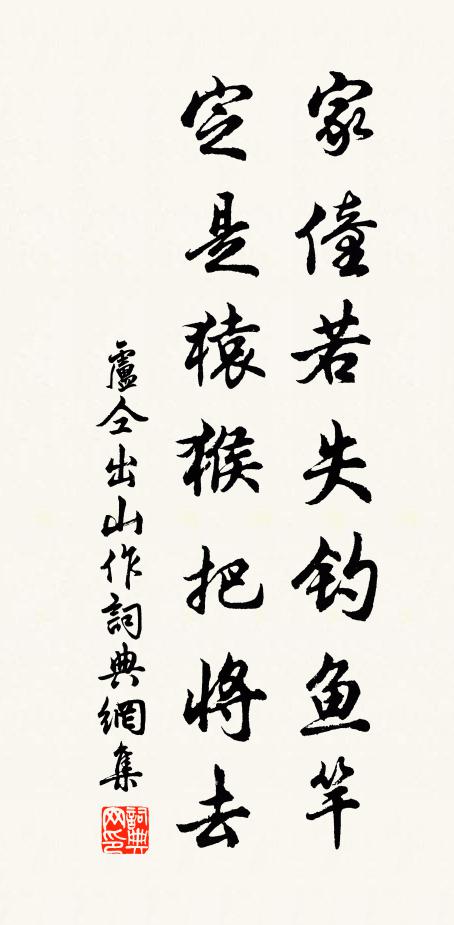 家僮若失钓鱼竿
定是猿猴把将去
盧仝出山作詞典網集
詞典网印